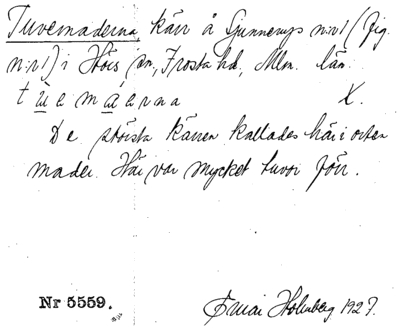 Tuvemaderna, kärr å Sjunnerup n:r 1 (Fig.
n:r 1) i Hörs sn, Frosta hd, Mlm. län.
t ù e m à e r n a X.
De största kärren kallades här i orten
mader. Här var mycket tuvor förr.
Nr 5559. Ernst Holmberg 1927.